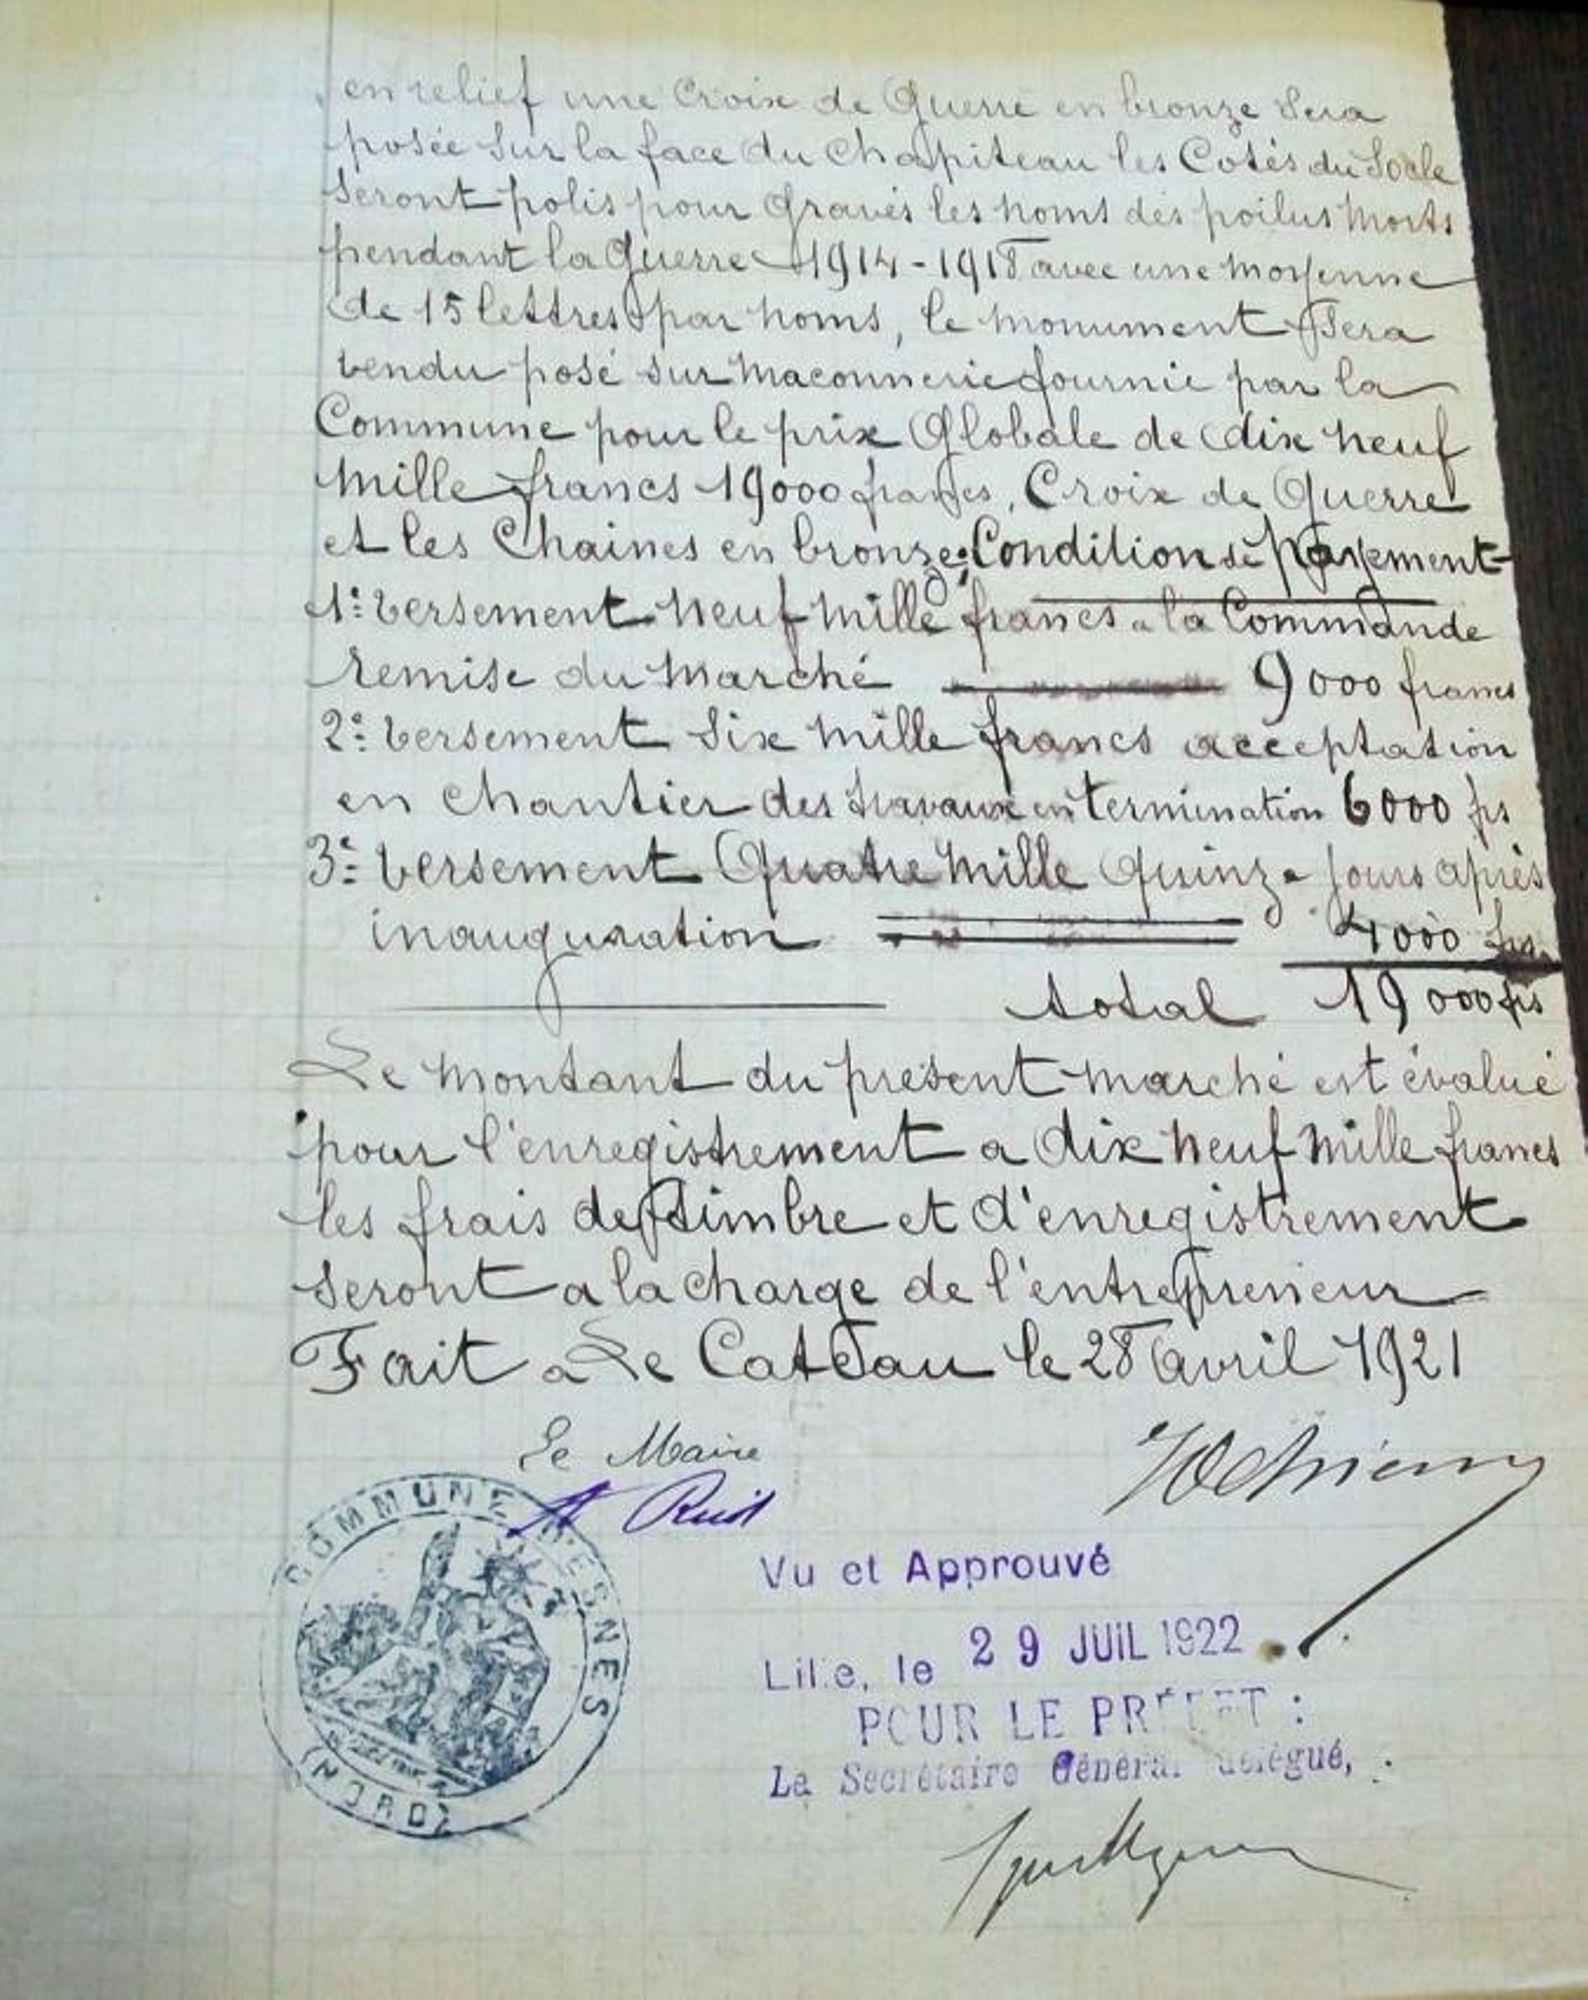 en relief une Croix de Guerre en bronze Sera
posée Sur la face du Chapiteau les Cotés du Socle
Seront polis pour Gravés les noms des poilus Morts
pendant la Guerre 1914-1918 avec une moyenne
de 15 lettres par noms, le monument Sera
vendu posé sur maconnerie fournie par la
Commune pour le prix Globale de dix neuf
Mille francs 19000 francs, Croix de Guerre
et les Chaines en bronze; Condition de Payement
1e: versement neuf mille francs a la Commande
remise du Marché 9000 francs
2e: versement Six mille francs acceptation
en Chantier des travaux en termination 6000 frs
3e: versement Quatre Mille Quinze jours après
inauguration 4000 frs
total 19000 frs
Le montant du présent marché est évalué
pour l'enregistrement a dix neuf mille francs
les frais de timbre et d'enregistrement
Seront a la charge de l'entrepreneur
Fait a Le Cateau le 28 avril 1921
Le Maire
COMMUNE D'ESNES
(NORD)
Vu et Approuvé
Lille, le 29 JUIL 1922
POUR LE PRÉFET :
Le Secrétaire Général délégué,